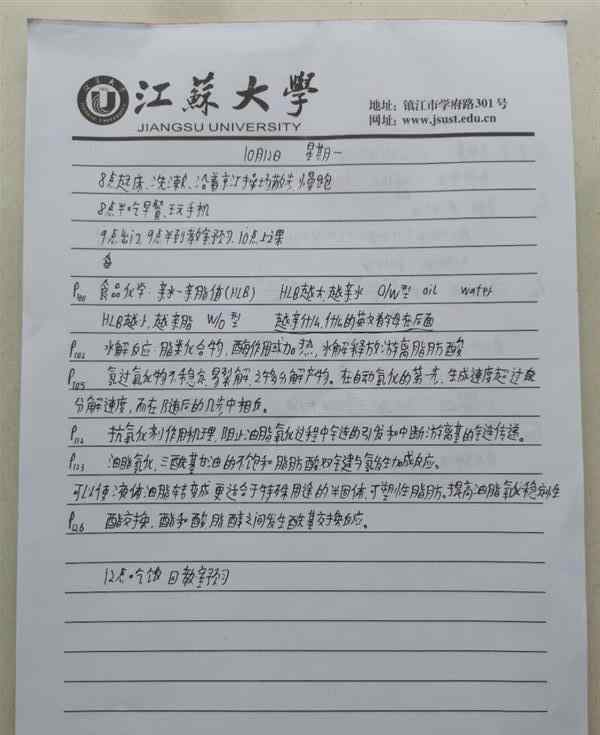 江苏大学
JIANGSU UNIVERSITY
地址：镇江市学府路301号
网址：www.jsust.edu.cn
10月12日 星期一
8点起床、洗漱、沿着江操场散步、慢跑
8点半吃早餐、玩手机
9点出门，9点半到教室预习，10点上课
P100 食品化学：亲水-亲脂值(HLB) HLB越大，越亲水 O/W型 oil water
HLB越小，越亲脂 W/O型 越亲什么，什么的英文首字母在后面
P102 水解反应：脂类化合物，酶作用或加热，水解释放游离脂肪酸
P105 氢过氧化物不稳定，易裂解，分解产物。在自动氧化的第一步，生成速度超过
分解速度，而在随后的几步中相反。
P114 抗氧化剂作用机理，阻止油脂氧化过程中链的引发和中断游离基的链传递。
P123 油脂氢化，三酰基甘油的不饱和脂肪酸双键与氢发生加成反应。
可以使液体油脂转变成更适合于特殊用途的半固体，可塑性脂肪。提高油脂氧化稳定性
P126 酯交换，酯和酸、脂、醇之间发生酰基交换反应。
12点吃饭 回教室预习